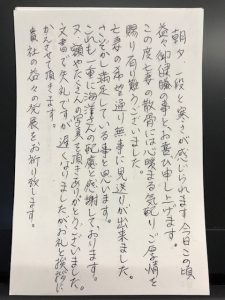 朝夕、一段と寒さが感じられます今日この頃
益々御健勝の事と、お喜び申し上げます。
この度亡妻の散骨には心暖まる気配りご厚情を
賜り有り難うございました。
亡妻の希望通り無事に見送りが出来ました。
さぞかし満足している事と思います。
これも一重に海洋さんの配慮と感謝しております。
又、額やたくさんの写真を頂きありがとうございました。
文書で失礼ですが遅くなりましたがお礼と挨拶に
かえさせて頂きます。
貴社の益々の発展をお祈り致します。